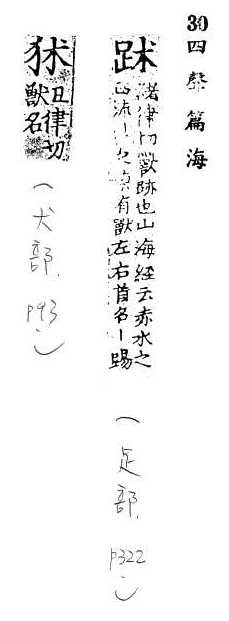 30四聲篇海
䟣
諸律切獸跡也山海經云赤水之
西流丨之東有獸左右首名丨踢
(足部. p322)
狖
丑律切
獸名
(犬部. p93)